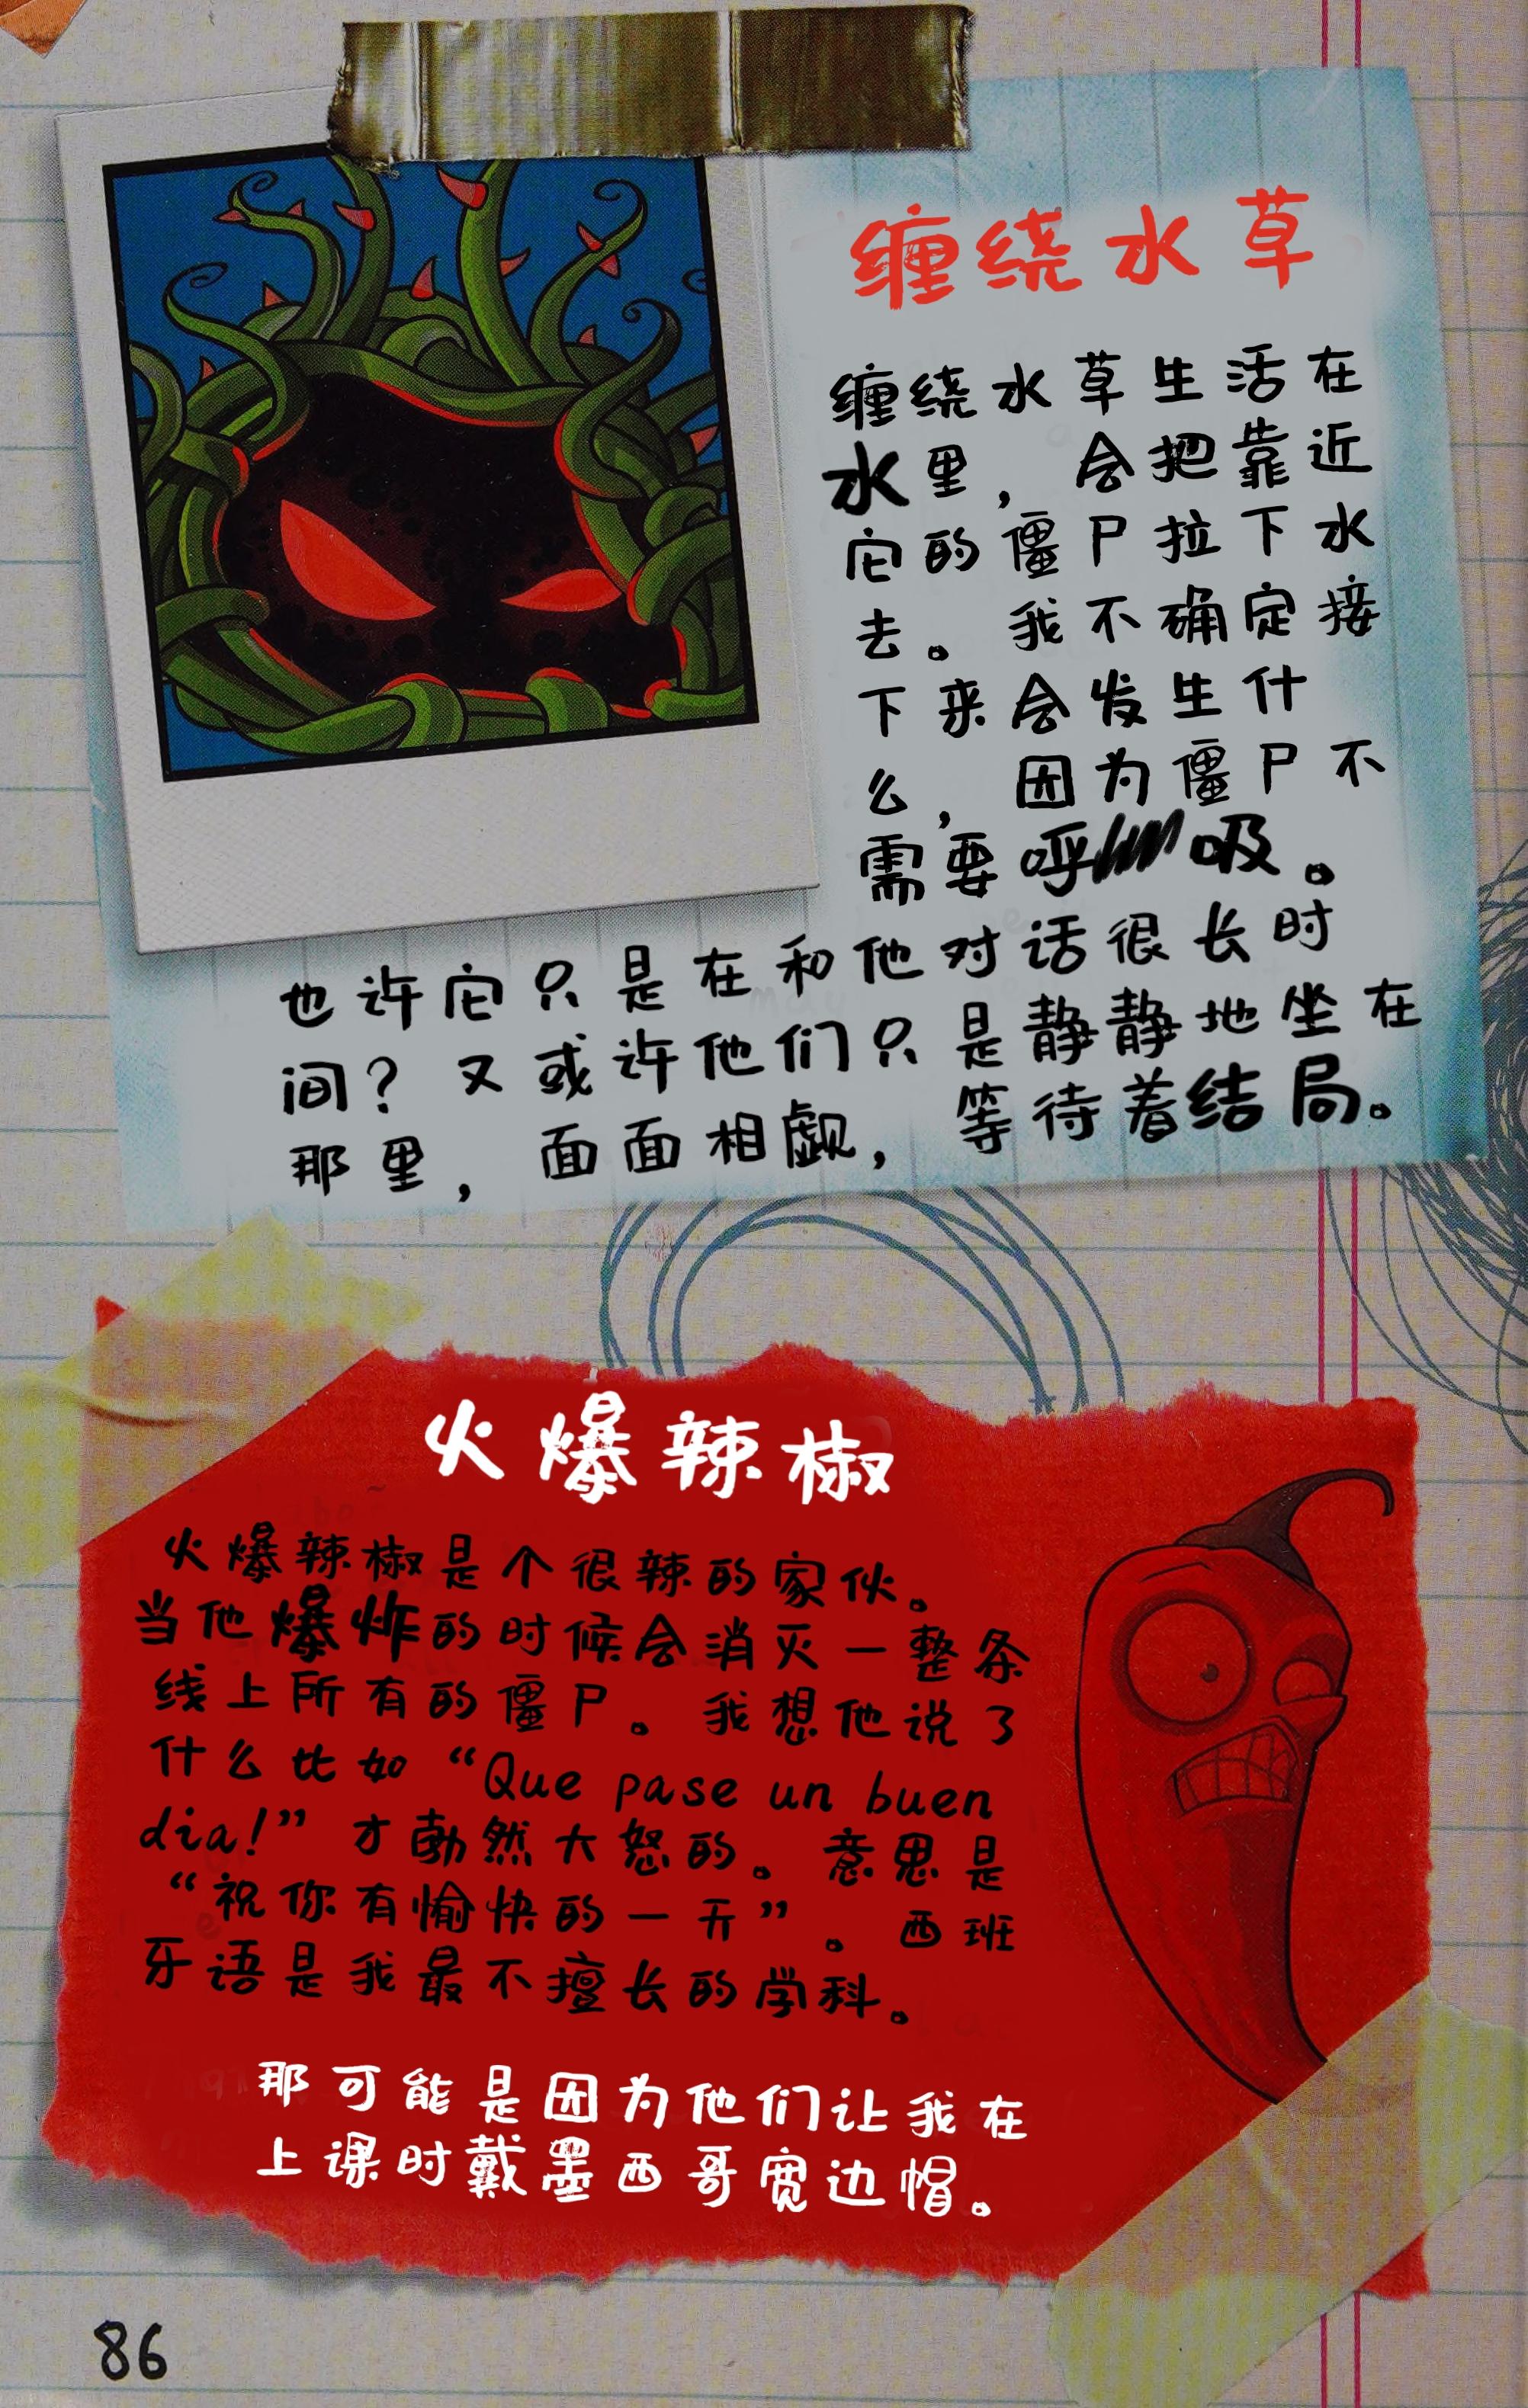 缠绕水草
缠绕水草生活在
水里，会把靠近
它的僵尸拉下水
去。我不确定接
下来会发生什
么，因为僵尸不
需要呼吸。
也许它只是在和他对话很长时
间？又或许他们只是静静地坐在
那里，面面相觑，等待着结局。
火爆辣椒
火爆辣椒是个很辣的家伙。
当他爆炸的时候会消灭一整条
线上所有的僵尸。我想他说了
什么比如“Que pase un buen
dia!”才勃然大怒的。意思是
“祝你有愉快的一天”。西班
牙语是我最不擅长的学科。
那可能是因为他们让我在
上课时戴墨西哥宽边帽。
86